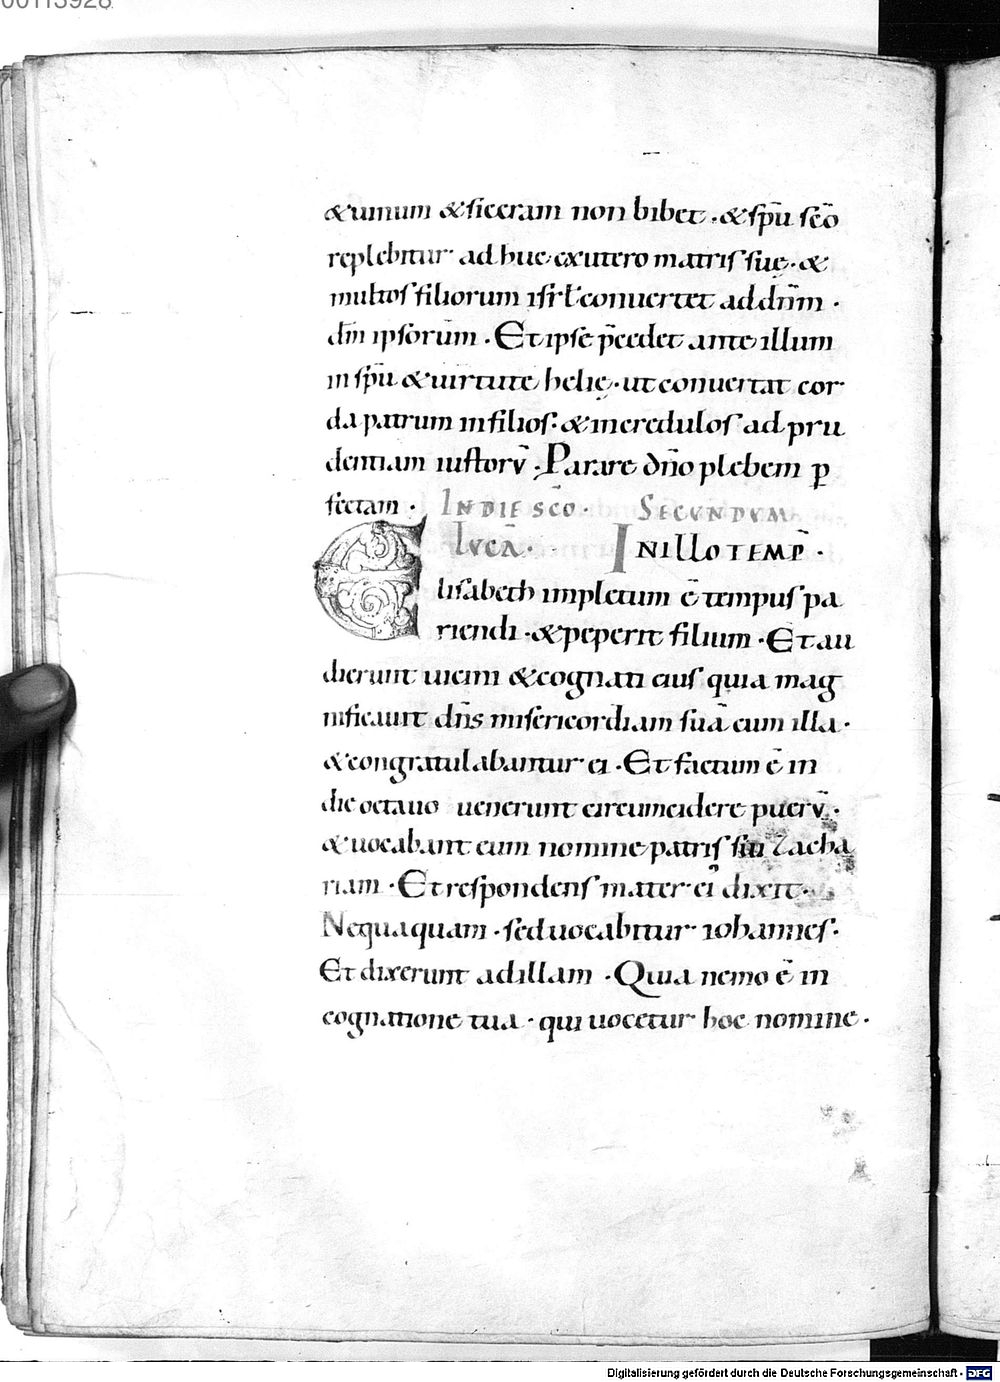 00113928
&uinum &siceram non bibet · &sp̄u sc̄o
replebitur ad huc exutero matris suę · &
multos filiorum isrl̄ conuertet addn̄m ·
dm̄ ipsorūm · Et ipse p̄cedet ante illum
in sp̄u &uirtute helię · ut conuertat cor
da patrum in filios · & incredulos ad pru
dentiam iustorv̄ · Parare dn̄o plebem p
fectam · IN DIE SC̄O · SECVNDVM
LVCĀ · IN ILLO TEMP̄ ·
Elisabeth impletum ē tempus pa
riendi · &peperit filium · Et au
dierunt uicini &cognati eius quia mag
nificauit dn̄s misericordiam suā cum illa ·
&congratulabantur ei · Et factum ē in
die octauo uenerunt circumcidere puerv̄ ·
&uocabant eum nomine patris sui Zacha
riam · Et respondens mater ei dixit ·
Nequaquam · sed uocabitur iohannes ·
Et dixerunt ad illam · Quia nemo ē in
cognatione tua · qui uocetur hoc nomine ·
Digitalisierung gefördert durch die Deutsche Forschungsgemeinschaft - DFG